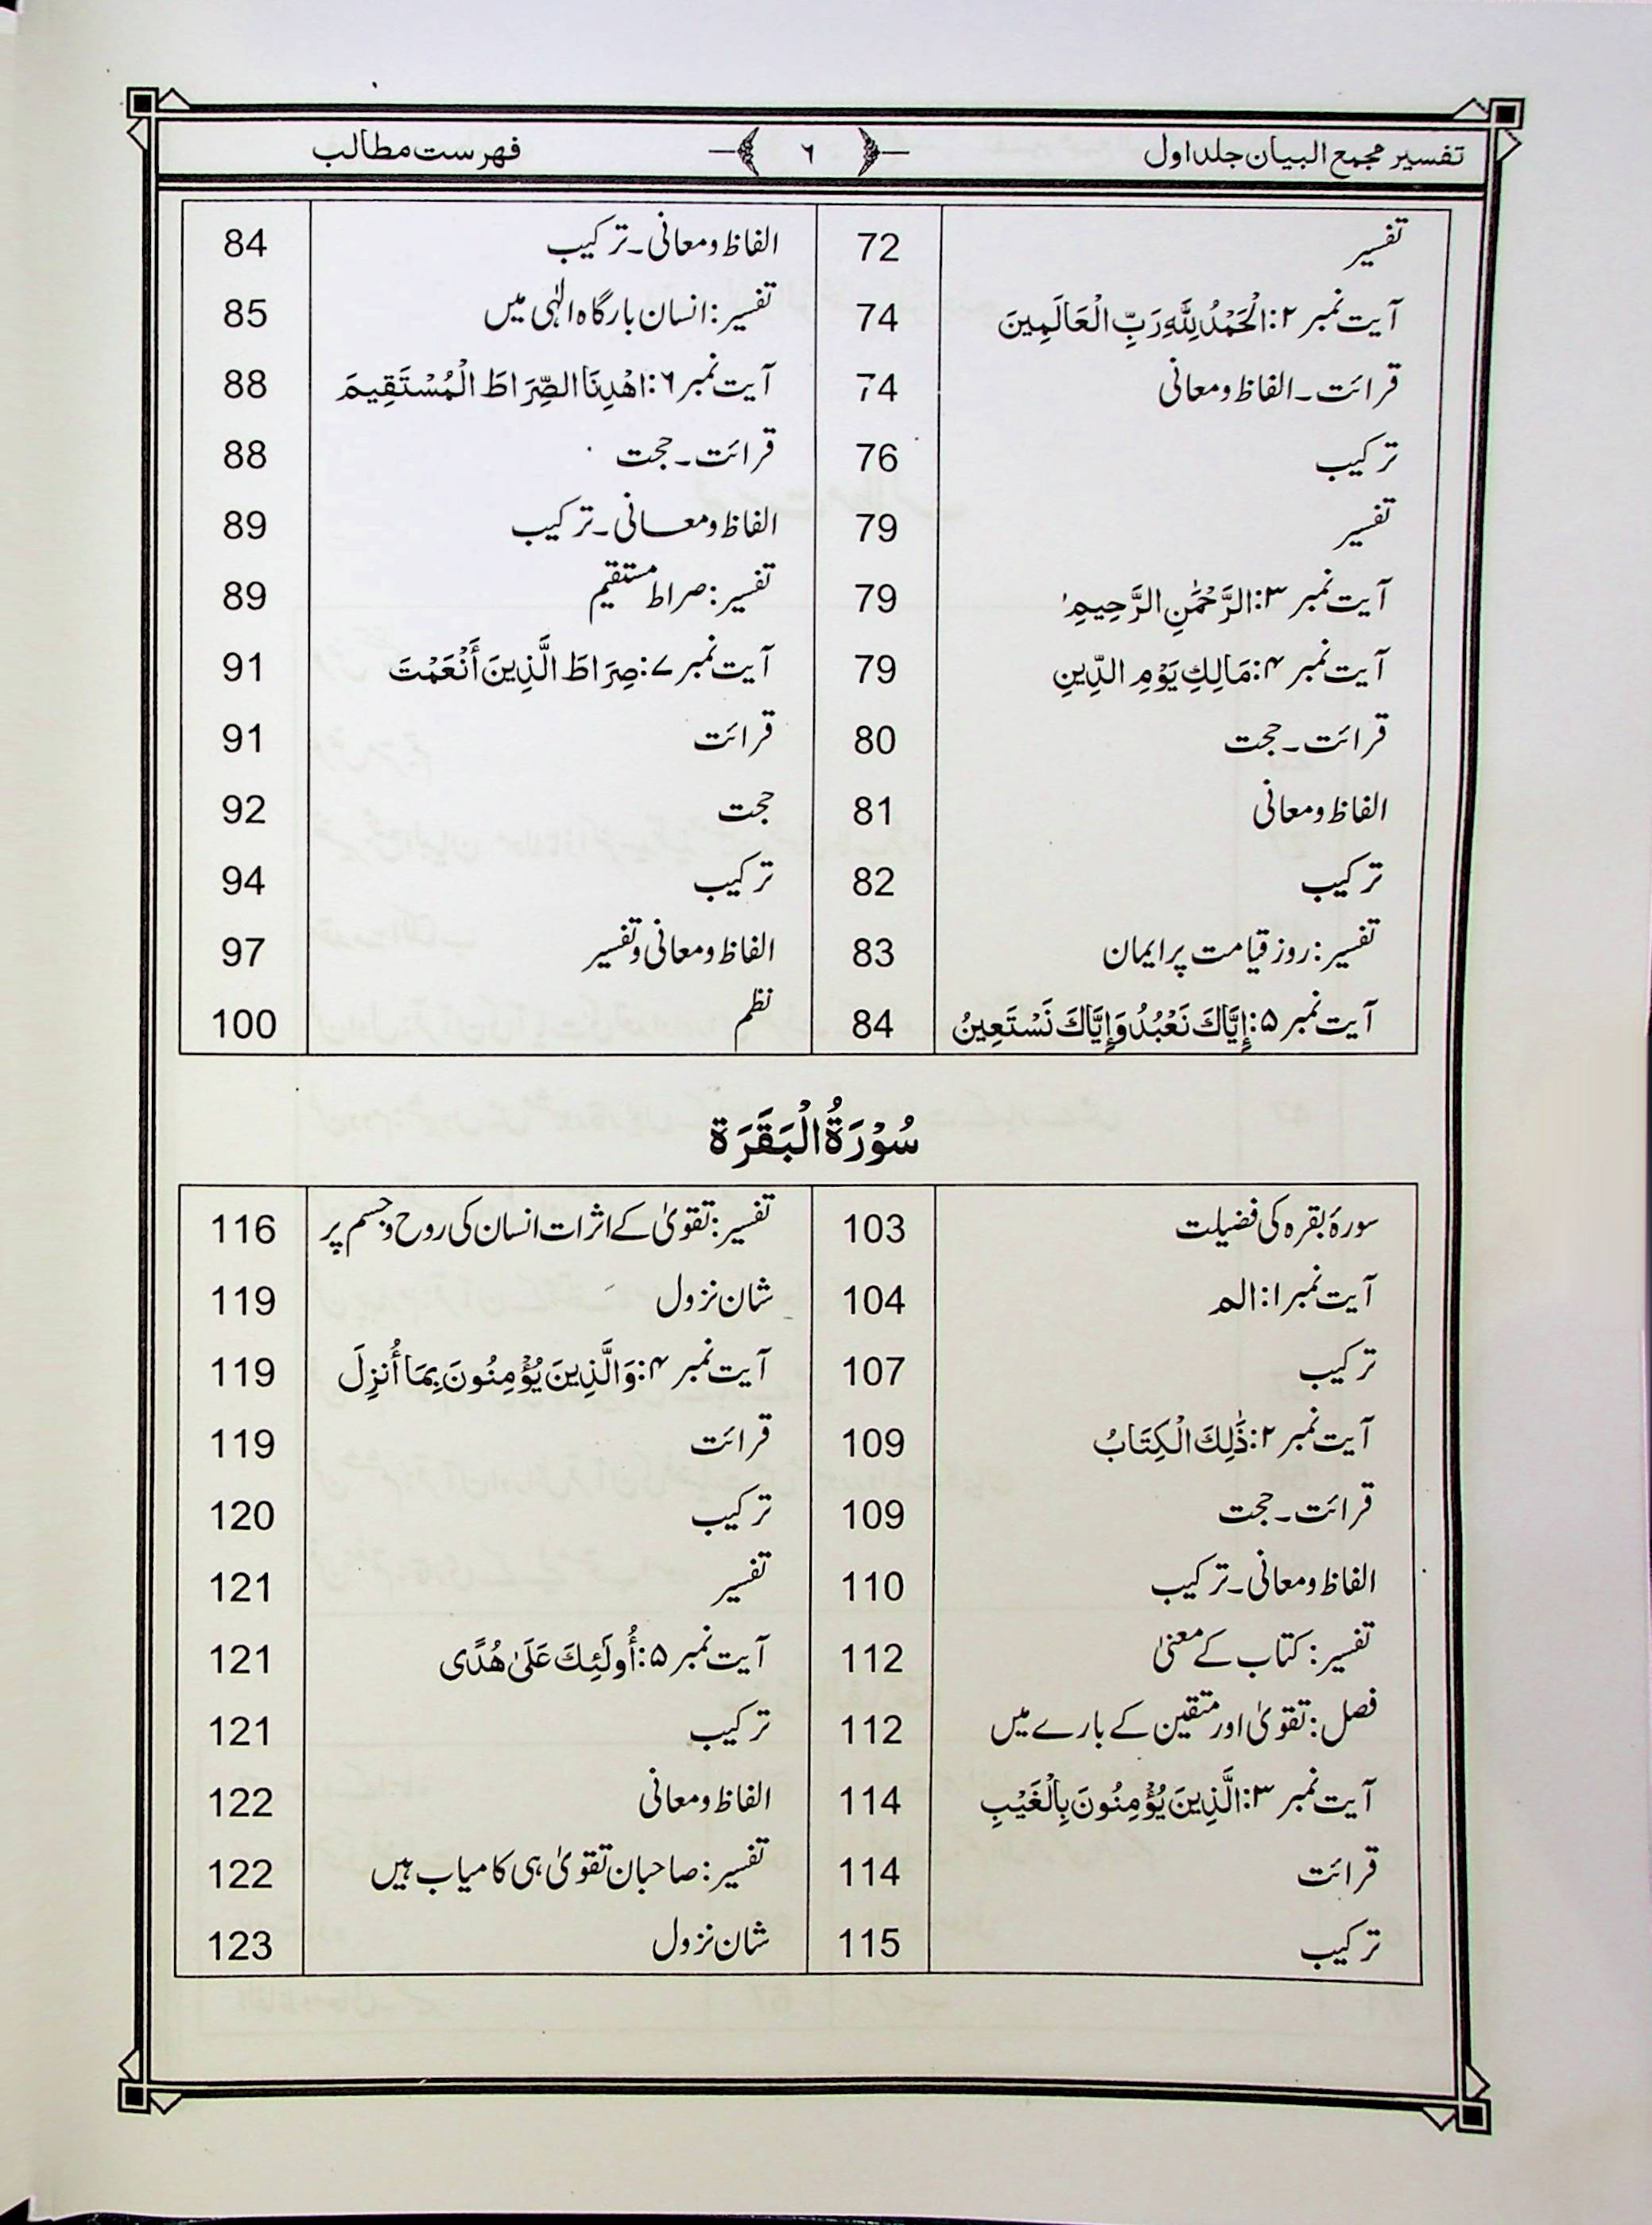 تفسیر مجمع البیان جلد اول ۶ فہرست مطالب
تفسیر 72
آیت نمبر ۲: الْحَمْدُ لِلَّهِ رَبِّ الْعَالَمِينَ 74
قرائت ۔ الفاظ و معانی 74
ترکیب 76
تفسیر 79
آیت نمبر ۳: الرَّحْمَٰنِ الرَّحِيمِ 79
آیت نمبر ۴: مَالِكِ يَوْمِ الدِّينِ 79
قرائت ۔ حجت 80
الفاظ و معانی 81
ترکیب 82
تفسیر: روز قیامت پر ایمان 83
آیت نمبر ۵: إِيَّاكَ نَعْبُدُ وَإِيَّاكَ نَسْتَعِينُ 84
الفاظ و معانی ۔ ترکیب 84
تفسیر: انسان بارگاہ الٰہی میں 85
آیت نمبر ۶: اهْدِنَا الصِّرَاطَ الْمُسْتَقِيمَ 88
قرائت ۔ حجت 88
الفاظ و معانی ۔ ترکیب 89
تفسیر: صراط مستقیم 89
آیت نمبر ۷: صِرَاطَ الَّذِينَ أَنْعَمْتَ 91
قرائت 91
حجت 92
ترکیب 94
الفاظ و معانی و تفسیر 97
نظم 100
سُوْرَةُ الْبَقَرَة
سورۂ بقرہ کی فضیلت 103
آیت نمبر ۱: الم 104
ترکیب 107
آیت نمبر ۲: ذَٰلِكَ الْكِتَابُ 109
قرائت ۔ حجت 109
الفاظ و معانی ۔ ترکیب 110
تفسیر: کتاب کے معنیٰ 112
فصل: تقویٰ اور متقین کے بارے میں 112
آیت نمبر ۳: الَّذِينَ يُؤْمِنُونَ بِالْغَيْبِ 114
قرائت 114
ترکیب 115
تفسیر: تقویٰ کے اثرات انسان کی روح و جسم پر 116
شان نزول 119
آیت نمبر ۴: وَالَّذِينَ يُؤْمِنُونَ بِمَا أُنزِلَ 119
قرائت 119
ترکیب 120
تفسیر 121
آیت نمبر ۵: أُولَٰئِكَ عَلَىٰ هُدًى 121
ترکیب 121
الفاظ و معانی 122
تفسیر: صاحبان تقویٰ ہی کامیاب ہیں 122
شان نزول 123